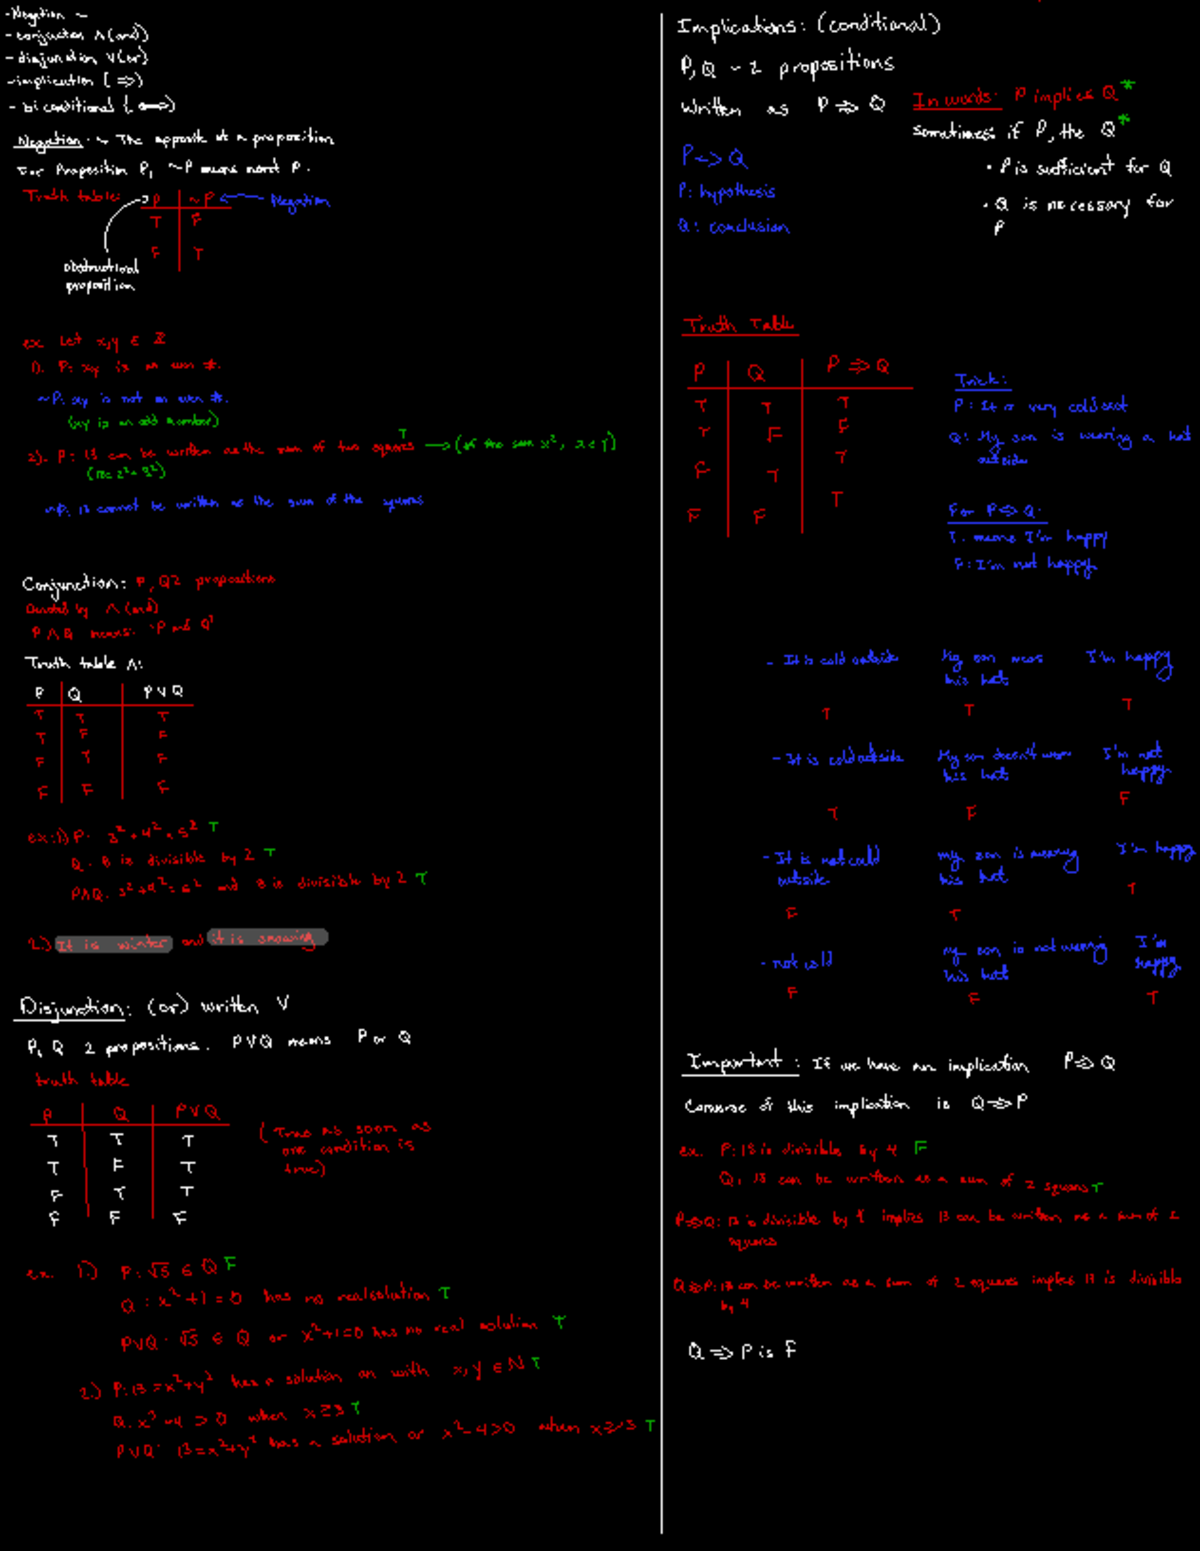 - Negation ~
- conjuction ∧ (and)
- disjunction ∨ (or)
- implication (⇒)
- bi conditional (⟺)
Negation: ~ The opposite of a proposition
For Proposition P, ~P means not P.
Truth table:
P ~P ← Negation
T F
F T
proposition
ex. Let x,y ∈ Z
1). P: xy is an even #.
~P: xy is not an even #.
(xy is an odd number)
2). P: 13 can be written as the sum of two squares T → (of the sum x², x ∈ Y)
(13 = 2² + 3²)
~P: 13 cannot be written as the sum of the squares
Conjunction: P, Q 2 propositions
Denoted by ∧ (and)
P ∧ Q means: "P and Q"
Truth table ∧:
P Q P ∨ Q
T T T
T F F
F T F
F F F
ex: 1) P: 3² + 4² = 5² T
Q: 8 is divisible by 2 T
P∧Q: 3² + 4² = 5² and 8 is divisible by 2 T
2.) It is winter and it is snowing
Disjunction: (or) written ∨
P, Q 2 propositions. P∨Q means P or Q
truth table
P Q P∨Q
T T T
T F T
F T T
F F F
(True as soon as
one condition is
true)
ex. 1.) P: √5 ∈ Q F
Q: x² + 1 = 0 has no real solution T
P∨Q: √5 ∈ Q or x² + 1 = 0 has no real solution T
2.) P: 13 = x² + y² has a solution on with x, y ∈ N T
Q: x² - 4 > 0 when x ≥ 3 T
P∨Q: 13 = x² + y² has a solution or x² - 4 > 0 when x ≥ 3 T
Implications: (conditional)
P, Q ~ 2 propositions
Written as P ⇒ Q
In words: P implies Q *
sometimes if P, the Q *
• P is sufficient for Q
• Q is necessary for
P
P ⇒ Q
P: hypothesis
Q: conclusion
Truth Table
P Q P ⇒ Q
T T T
T F F
F T T
F F T
Trick:
P: It is very cold out
Q: My son is wearing a hat
outside
For P ⇒ Q:
T: means I'm happy
F: I'm not happy
- It is cold outside My son wears his hat I'm happy
T T T
- It is cold outside My son doesn't wear his hat I'm not happy
T F F
- It is not cold outside my son is wearing his hat I'm happy
F T T
- not cold my son is not wearing his hat I'm happy
F F T
Important: If we have an implication P ⇒ Q
Converse of this implication is Q ⇒ P
ex. P: 13 is divisible by 4 F
Q: 13 can be written as a sum of 2 squares T
P ⇒ Q: 13 is divisible by 4 implies 13 can be written as a sum of 2
squares
Q ⇒ P: 13 can be written as a sum of 2 squares implies 13 is divisible
by 4
Q ⇒ P is F